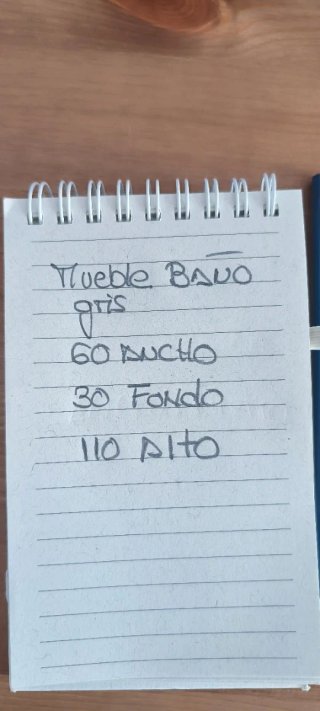 Mueble BAÑO
gris
60 ANCHO
30 FONdO
110 AltO